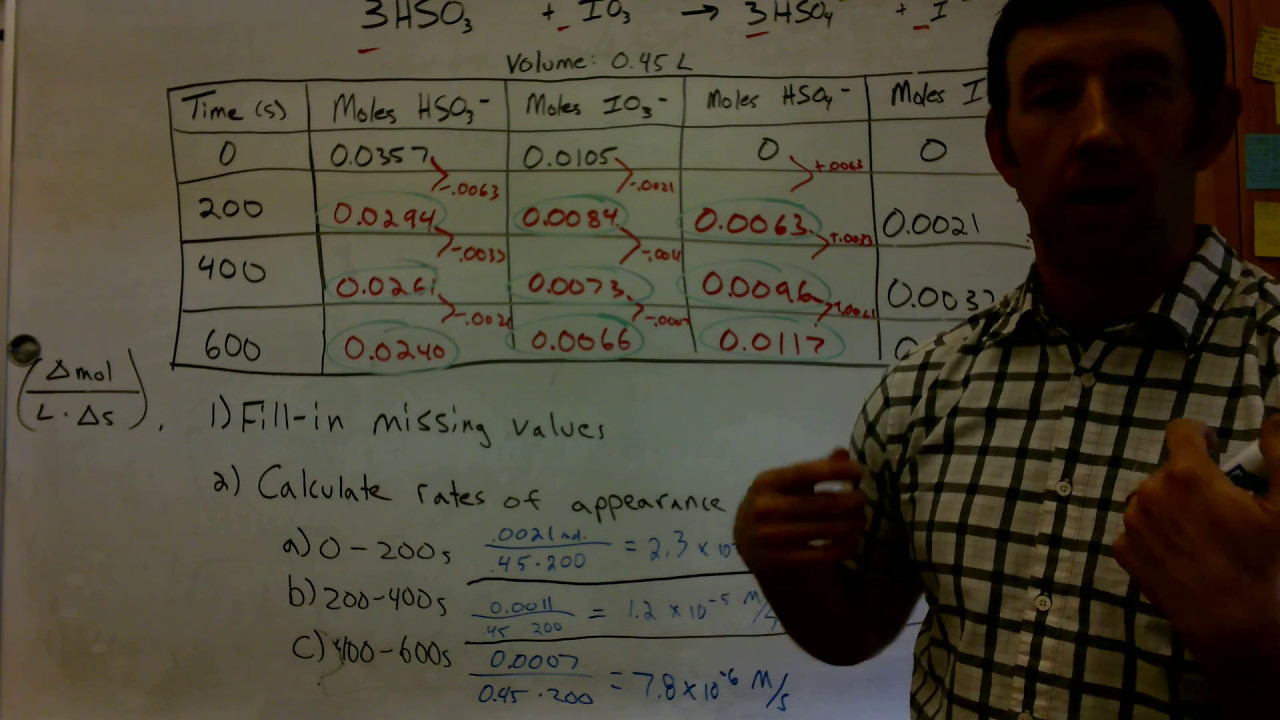 3HSO₃ + IO₃ → 3HSO₄ + I
Volume: 0.45 L
Time (s) Moles HSO₃⁻ Moles IO₃⁻ Moles HSO₄⁻ Moles I
0 0.0357 0.0105 0 0
-.0063 -.0021 +.0063
200 0.0294 0.0084 0.0063 0.0021
-.0033 -.0011 +.0033
400 0.0261 0.0073 0.0096 0.0032
-.0021 -.0007 +.0021
600 0.0240 0.0066 0.0117
(Δmol / L · Δs)
1) Fill-in missing values
2) Calculate rates of appearance
a) 0-200s .0021 mol. / .45 · 200 = 2.3 x 10
b) 200-400s 0.0011 / .45 200 = 1.2 x 10⁻⁵ M/s
c) 400-600s 0.0007 / 0.45 · 200 = 7.8 x 10⁻⁶ M/s